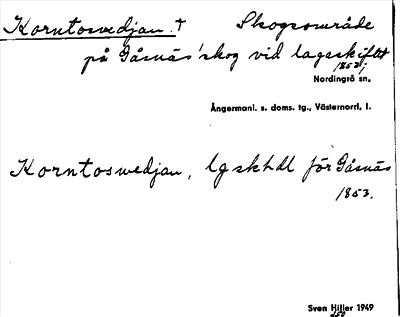 Korntoswedjan. † Skogsområde
på Gåsnäs' skog vid lagaskiftet
1853;
Nordingrå sn.
Ångermanl. s. doms. tg., Västernorrl. l.
Korntoswedjan, lgskhdl för Gåsnäs
1853.
Sven Hiller 1949